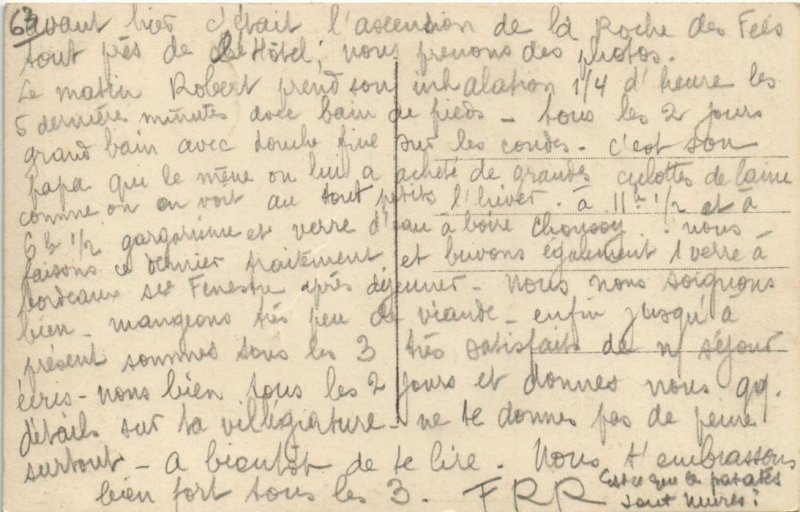 63
avant hier c'était l'ascension de la Roche des Fées
tout près de l'Hôtel; nous prenons des photos.
Le matin Robert prend son inhalation 1/4 d'heure les
5 dernières minutes avec bain de pieds - tous les 2 jours
grand bain avec douche fine sur les coudes - c'est son
papa qui le mène on lui a acheté de grandes culottes de laine
comme on en voit au tout petits l'hiver. à 11h 1/2 et à
6h 1/2 gargarisme et verre d'eau à boire Choussy. nous
faisons ce dernier traitement et buvons également 1 verre à
bordeaux Fenestre après déjeuner - Nous nous soignons
bien - mangeons très peu de viande - enfin jusqu'à
présent sommes tous les 3 très satisfaits de n/ séjour
écris-nous bien tous les 2 jours et donnes nous qq.
détails sur ta villégiature - ne te donnes pas de peine
surtout - A bientôt de te lire. Nous t'embrassons
bien fort tous les 3. FRR
Est-ce que les patates
sont mûres?